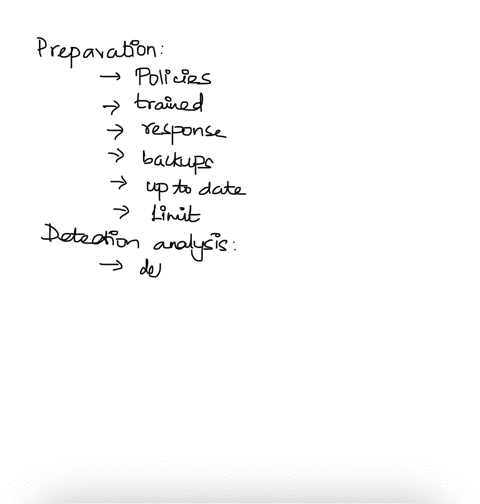 Preparation:
→ Policies
→ trained
→ response
→ backups
→ up to date
→ Limit
Detection analysis:
→ de